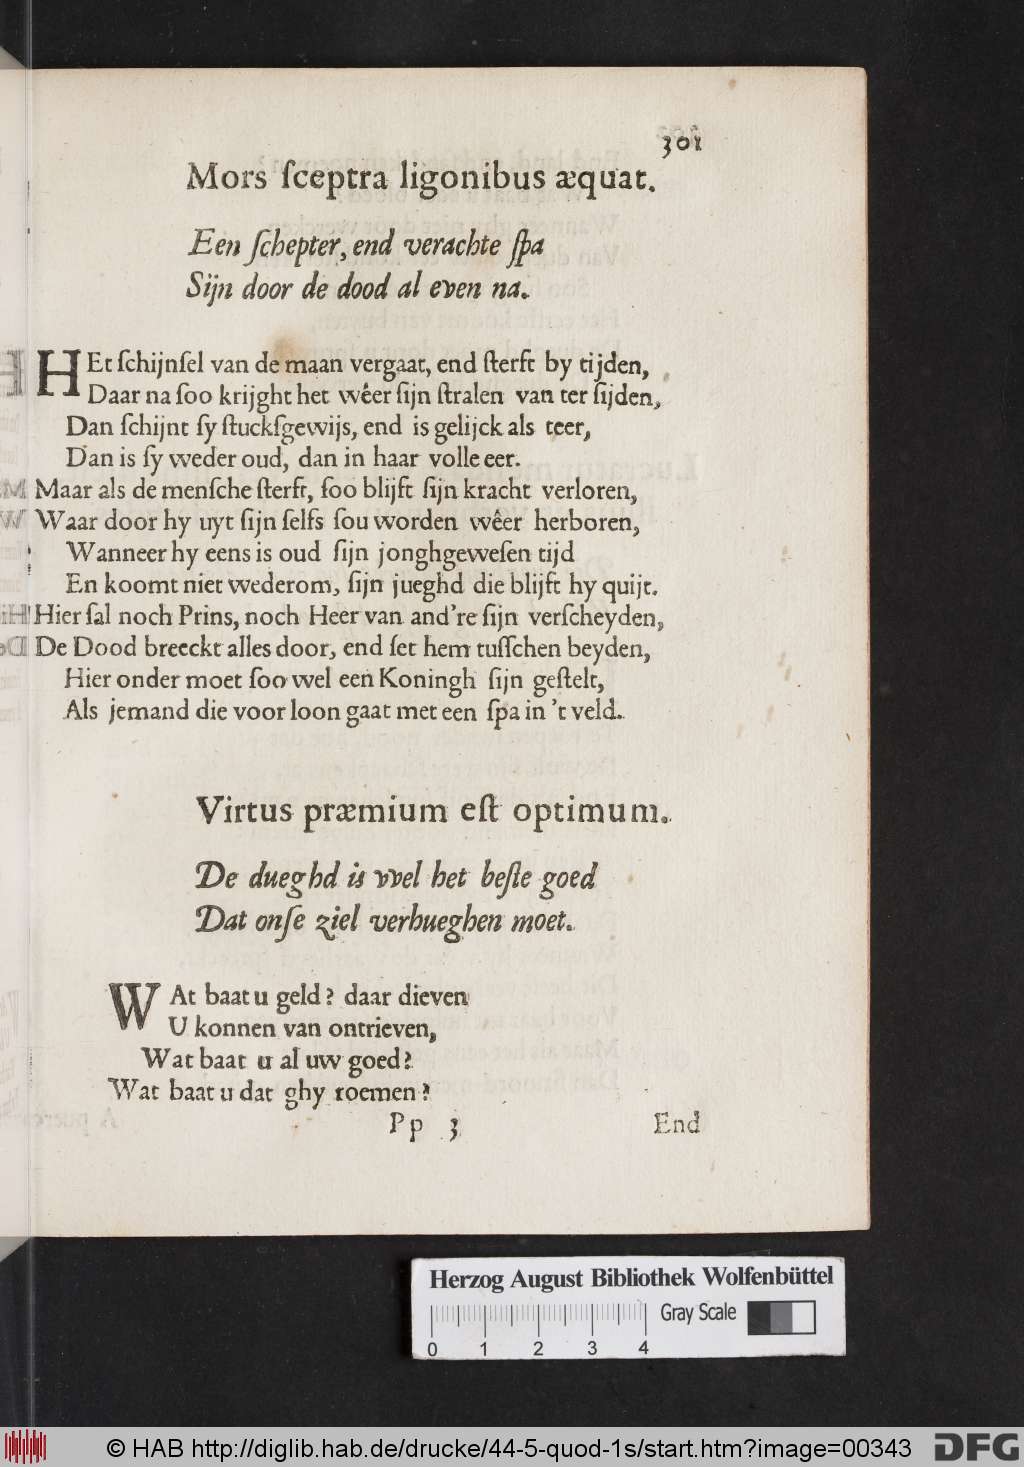 301
Mors ſceptra ligonibus æquat.
Een ſchepter, end verachte ſpa
Sijn door de dood al even na.
HEt ſchijnſel van de maan vergaat, end ſterft by tijden,
Daar na ſoo krijght het wêer ſijn ſtralen van ter ſijden,
Dan ſchijnt ſy ſtuckſgewijs, end is gelijck als teer,
Dan is ſy weder oud, dan in haar volle eer.
Maar als de menſche ſterft, ſoo blijft ſijn kracht verloren,
Waar door hy uyt ſijn ſelfs ſou worden wêer herboren,
Wanneer hy eens is oud ſijn jonghgeweſen tijd
En koomt niet wederom, ſijn jueghd die blijft hy quijt.
Hier ſal noch Prins, noch Heer van and're ſijn verſcheyden,
De Dood breeckt alles door, end ſet hem tuſſchen beyden,
Hier onder moet ſoo wel een Koningh ſijn geſtelt,
Als jemand die voor loon gaat met een ſpa in 't veld.
Virtus præmium eſt optimum.
De dueghd is vvel het beſte goed
Dat onſe ziel verhueghen moet.
WAt baat u geld? daar dieven
U konnen van ontrieven,
Wat baat u al uw goed?
Wat baat u dat ghy roemen?
Pp 3 End
Herzog August Bibliothek Wolfenbüttel
Gray Scale
0 1 2 3 4
© HAB http://diglib.hab.de/drucke/44-5-quod-1s/start.htm?image=00343
DFG